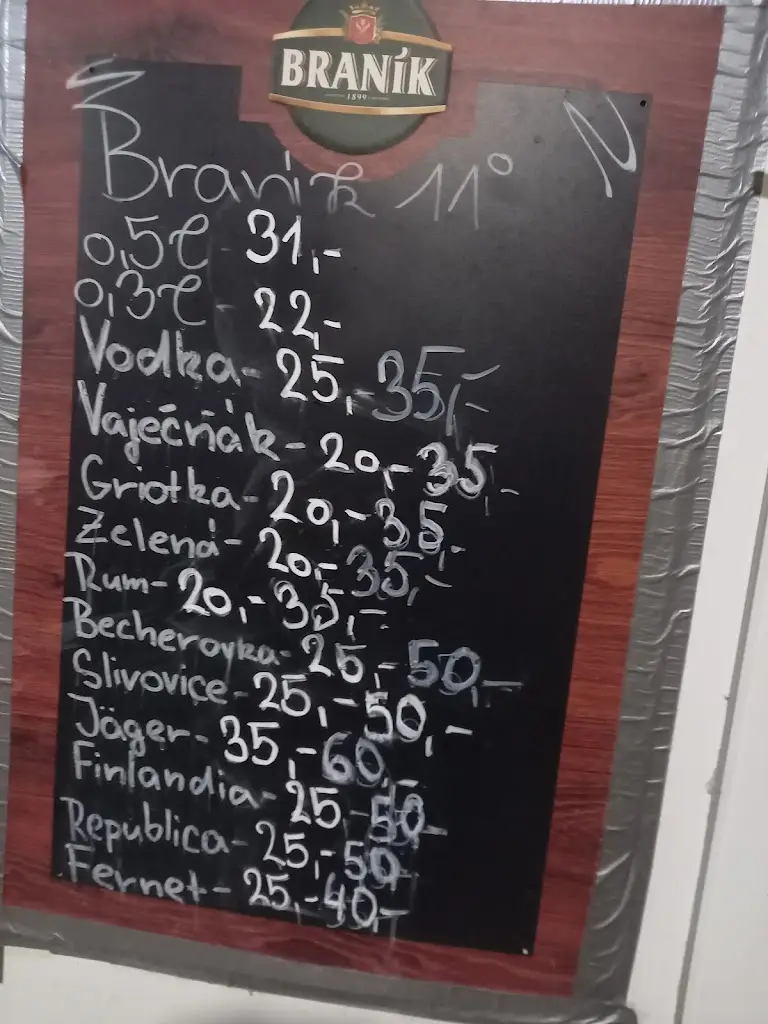 BRANÍK
1899
Braník 11°
0,5l - 31,-
0,3l - 22,-
Vodka - 25,- 35,-
Vaječňák - 20,- 35,-
Griotka - 20,- 35,-
Zelená - 20,- 35,-
Rum - 20,- 35,-
Becherovka - 25,- 50,-
Slivovice - 25,- 50,-
Jäger - 35,- 60,-
Finlandia - 25,- 50,-
Republica - 25,- 50,-
Fernet - 25,- 40,-